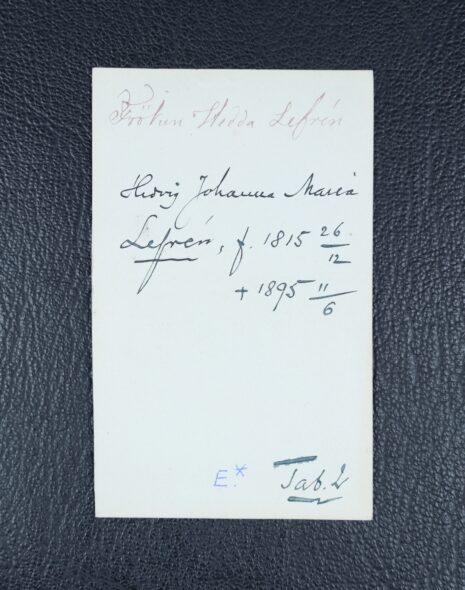 Fröken Hedda Lefrén
Hedvig Johanna Maria
Lefrén, f. 1815 26/12
+ 1895 11/6
E.* Tab. 2